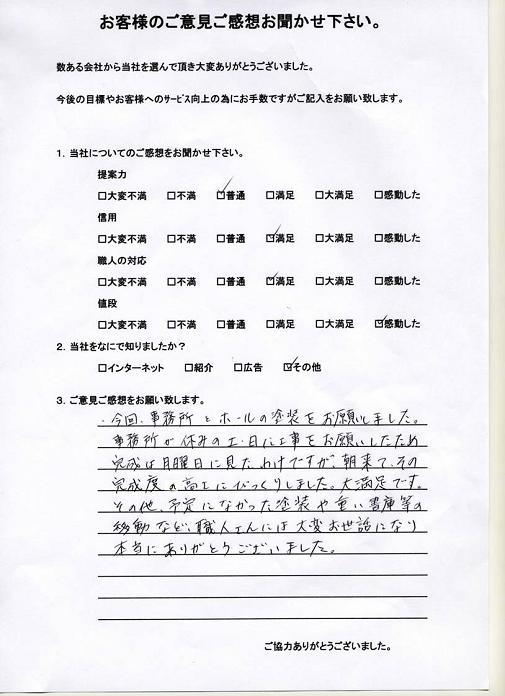 お客様のご意見ご感想お聞かせ下さい。
数ある会社から当社を選んで頂き大変ありがとうございました。
今後の目標やお客様へのサービス向上の為にお手数ですがご記入をお願い致します。
1．当社についてのご感想をお聞かせ下さい。
提案力
□大変不満 □不満 ☑普通 □満足 □大満足 □感動した
信用
□大変不満 □不満 □普通 ☑満足 □大満足 □感動した
職人の対応
□大変不満 □不満 □普通 ☑満足 □大満足 □感動した
値段
□大変不満 □不満 □普通 □満足 □大満足 ☑感動した
2．当社をなにで知りましたか？
□インターネット □紹介 □広告 ☑その他
3．ご意見ご感想をお願い致します。
・今回、事務所とホールの塗装をお願いしました。
事務所が休みの土・日に工事をお願いしたため
完成は月曜日に見たわけですが、朝来て、その
完成度の高さにびっくりしました。大満足です。
その他、予定になかった塗装や重い書庫等の
移動など、職人さんには大変お世話になり
本当にありがとうございました。
ご協力ありがとうございました。